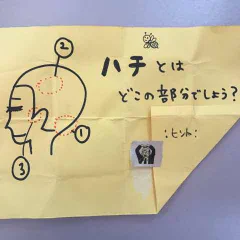 ②
ハチとは
どこの部分でしょう?
:ヒント:
①
③